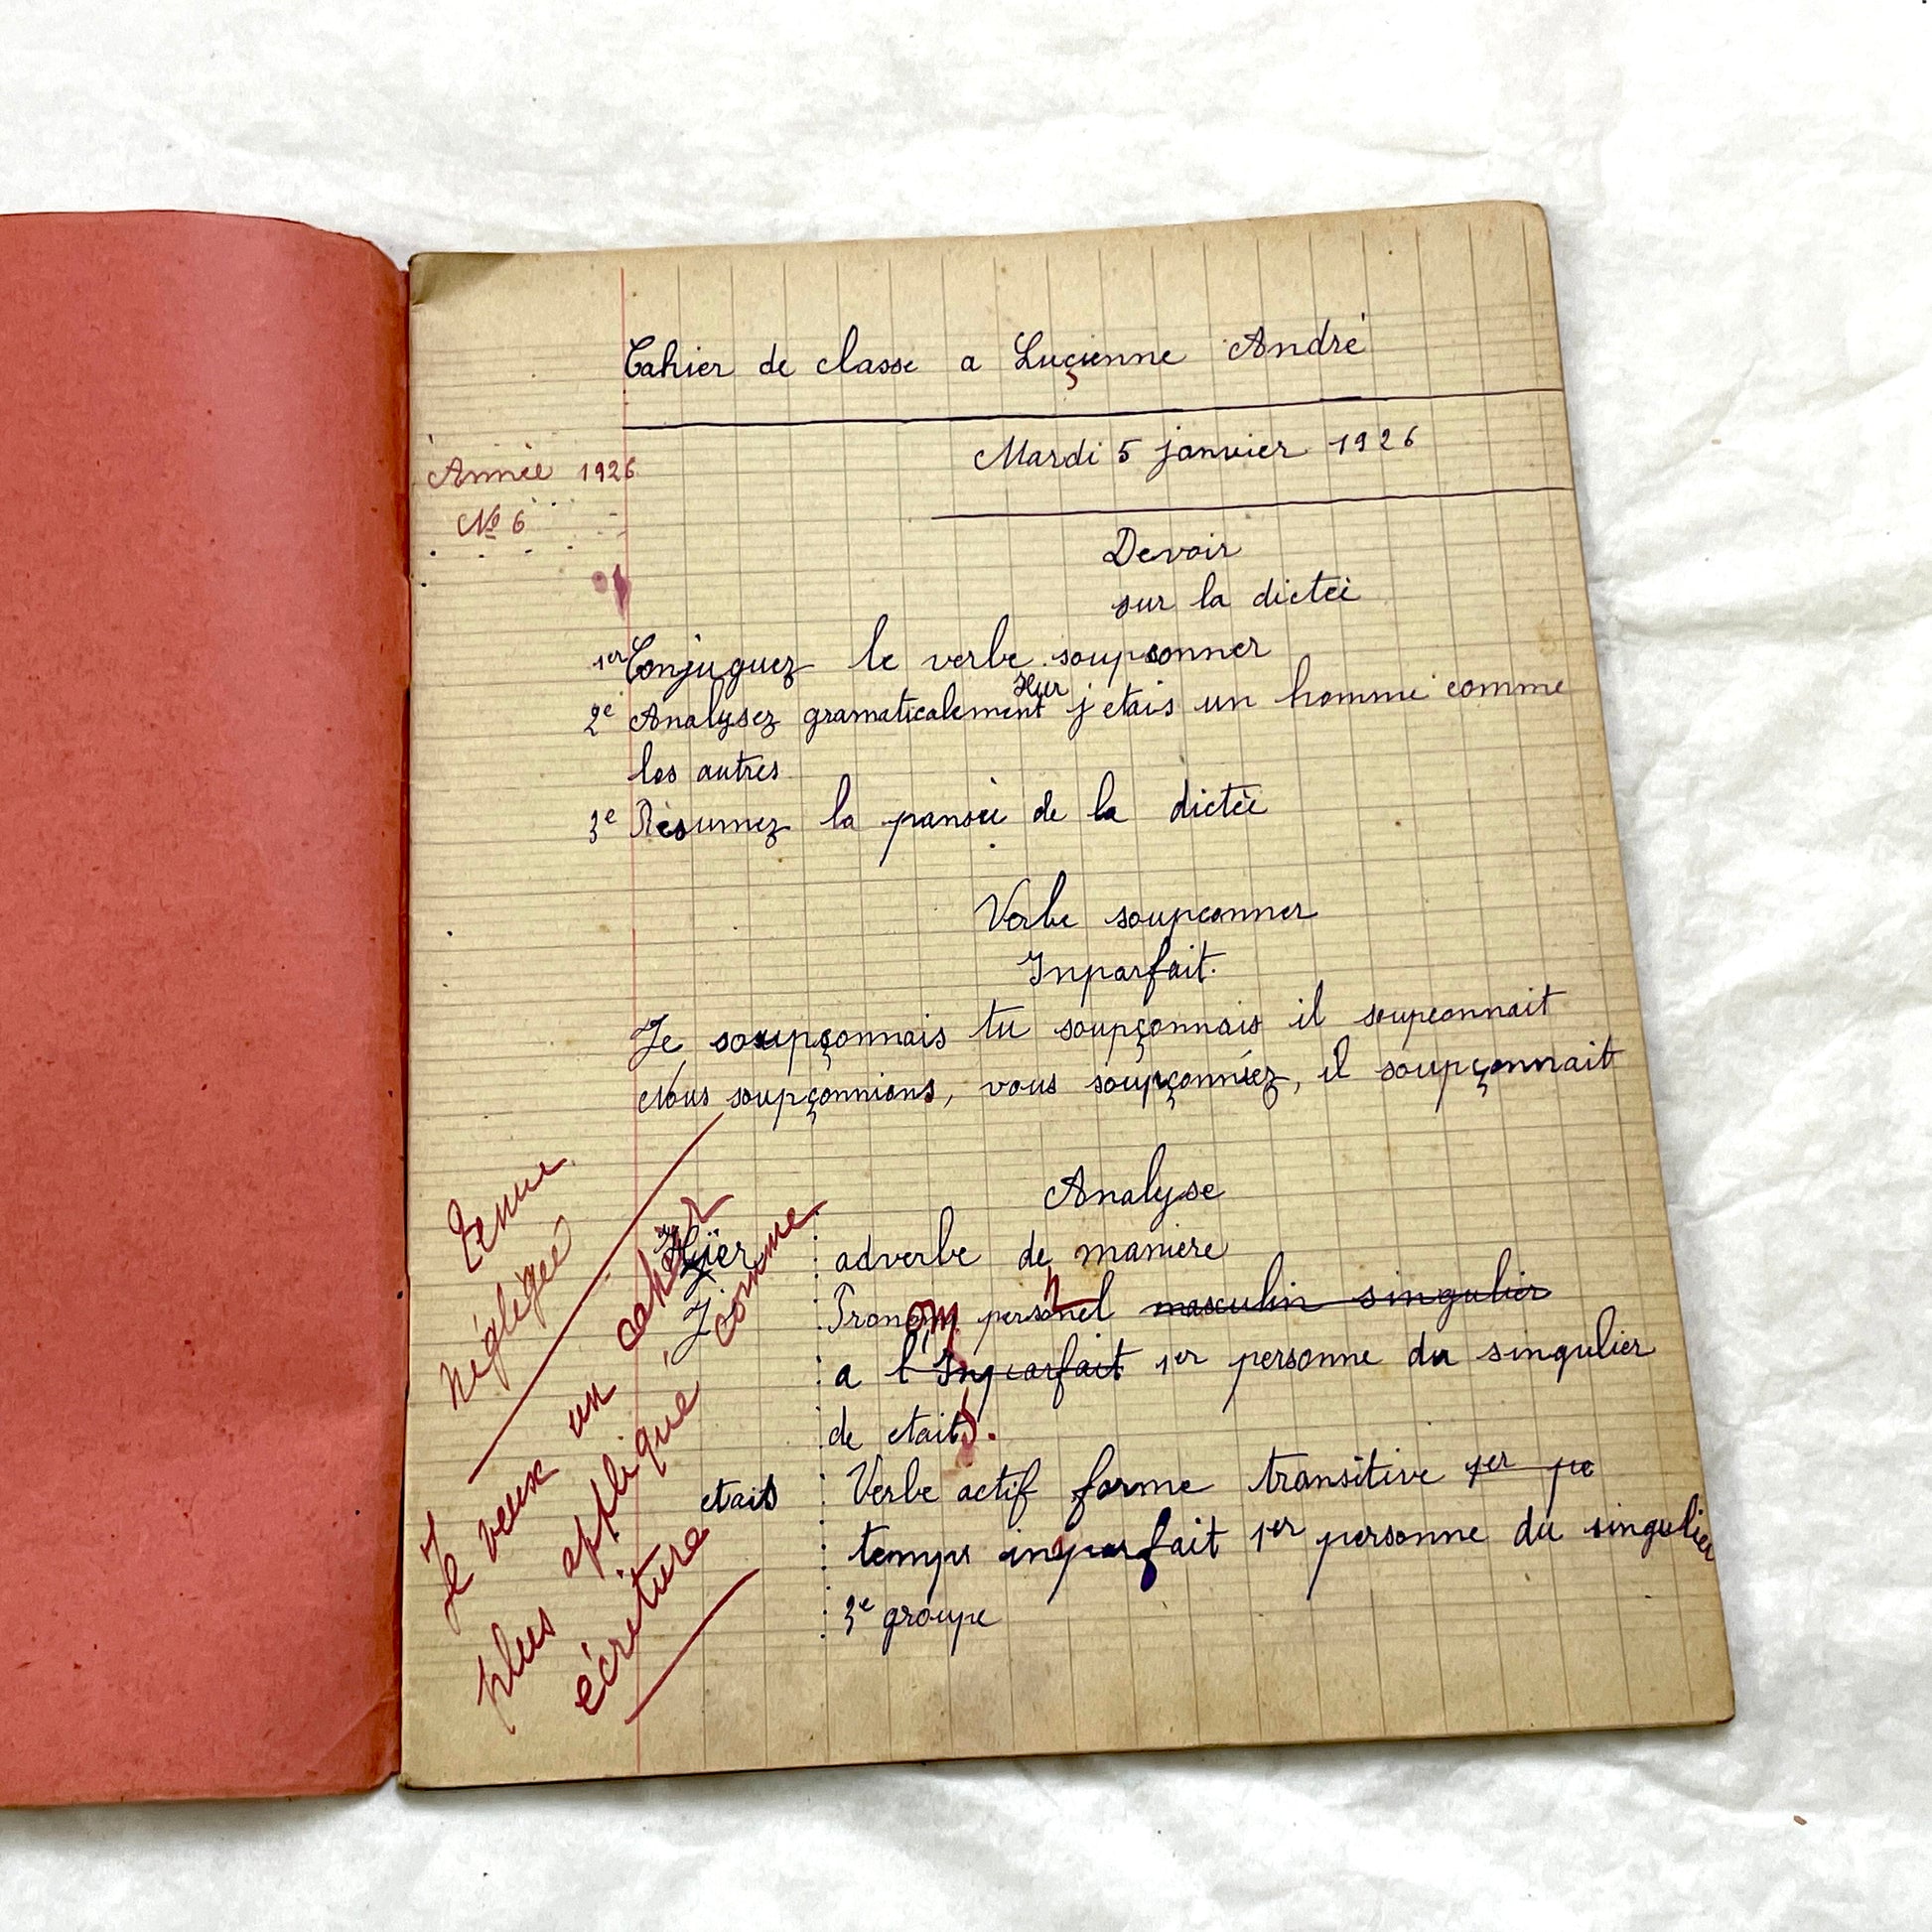 Cahier de classe a Luçienne André
Mardi 5 janvier 1926
Année 1926
No 6
Devoir
sur la dictée
1er Conjuguez le verbe soupsonner
Hier
2e Analysez gramaticalement j etais un homme comme
les autres
3e Résumez la pansée de la dictée
Verbe soupconner
Inparfait.
Je soupçonnais tu soupçonnais il soupconnait
Nous soupçonnions, vous soupçonniez, il soupçonnait
Analyse
Hier : adverbe de maniere
J' : Pronom personnel masculin singulier
: a l'Inparfait 1er personne du singulier
: de etait.
etais : Verbe actif forme transitive 1er pe
: temps inparfait 1er personne du singulier
: 3e groupe
Tenue
négligée
Je veux un cahier
plus appliqué, comme
écriture